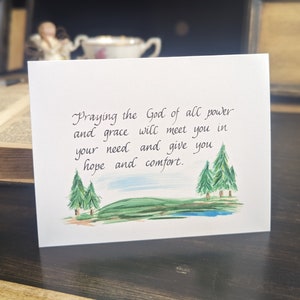 Praying the God of all power
and grace will meet you in
your need and give you
hope and comfort.